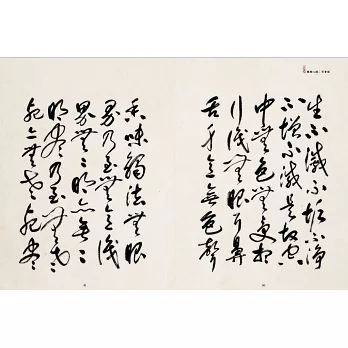 生不滅不垢不淨
不增不減是故空
中無色無受想
行識無眼耳鼻
舌身意無色聲
香味觸法無眼
界乃至無意識
界無〻明亦無〻
明盡乃至無老
死亦無老死盡